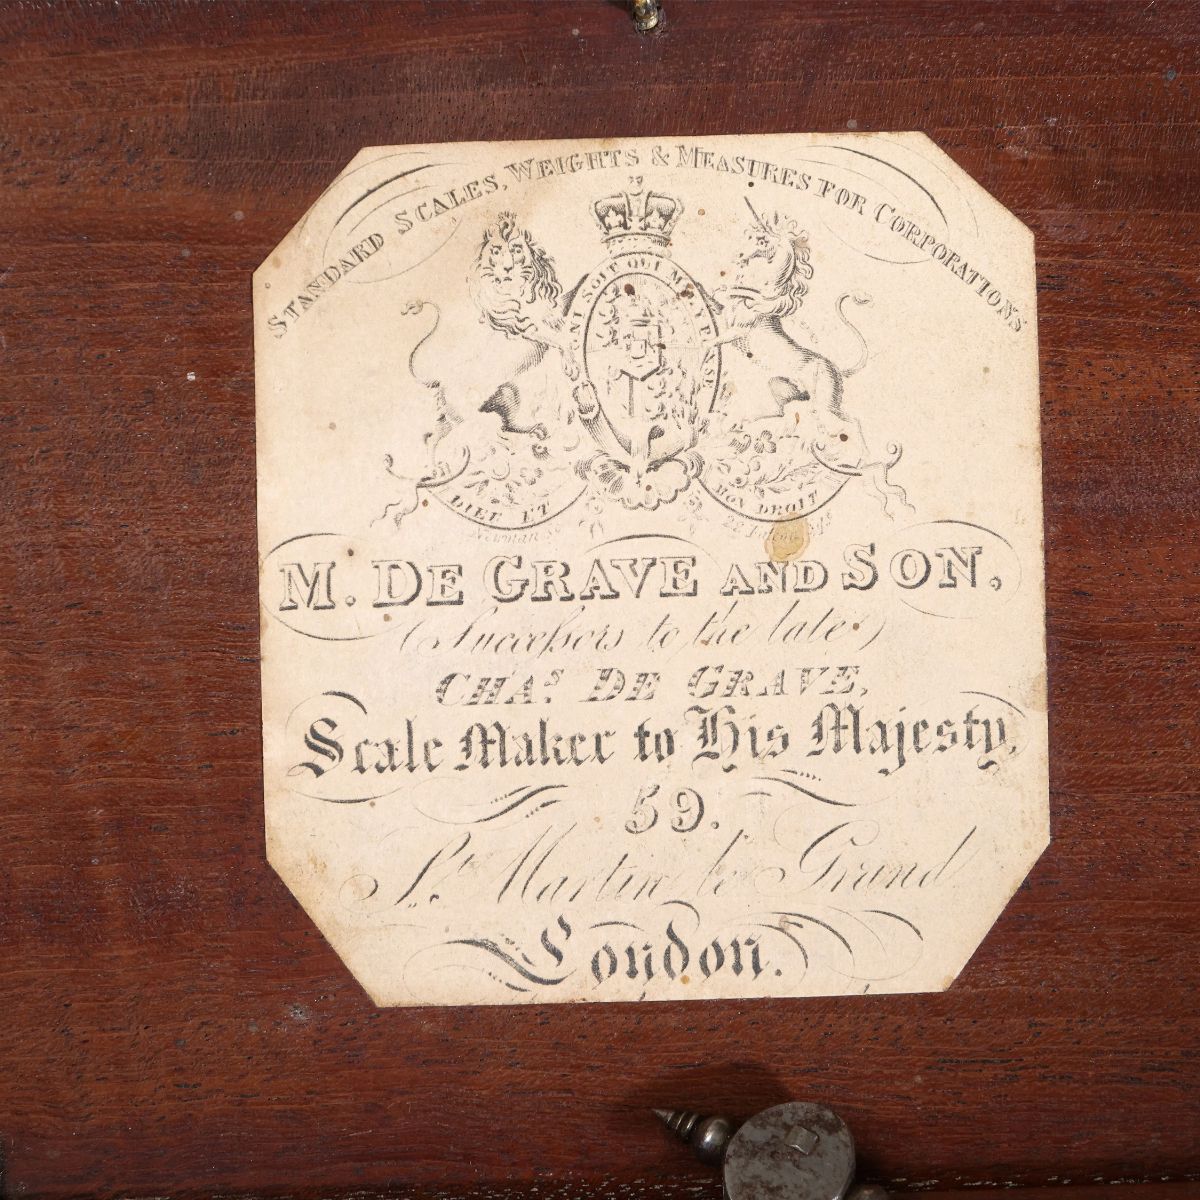 STANDARD SCALES, WEIGHTS & MEASURES FOR CORPORATIONS
HONI SOIT QUI MAL Y PENSE
DIEU ET MON DROIT
Newman sc
M. DE GRAVE AND SON,
(Successors to the late)
CHAs. DE GRAVE,
Scale Maker to His Majesty,
59.
St. Martin's le Grand
London.